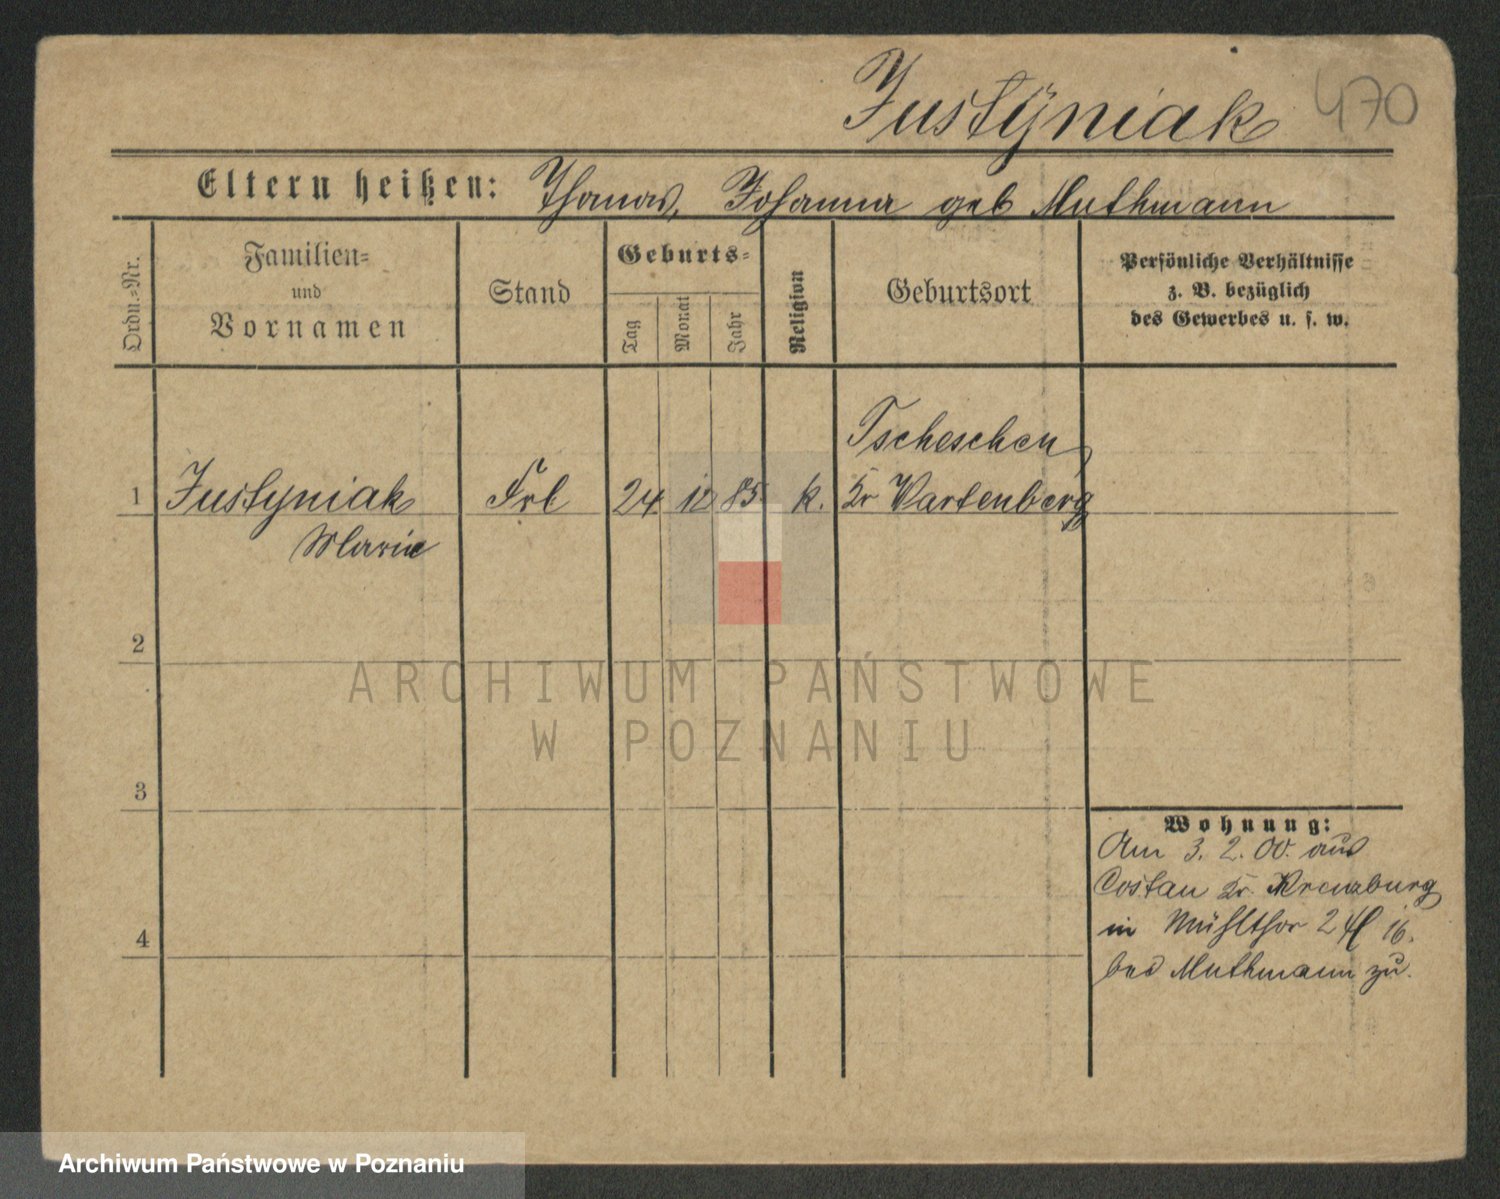 Justÿniak 470
Eltern heißen: Thomas, Johanna geb Muthmann
Ordn.-Nr.
Familien-
und
Vornamen
Stand
Geburts-
Tag
Monat
Jahr
Religion
Geburtsort
Persönliche Verhältnisse
z. B. bezüglich
des Gewerbes u. s. w.
Tscheschen
1 Justyniak Frl 24 12 85 k. Kr Wartenberg
Marie
2
ARCHIWUM PAŃSTWOWE
W POZNANIU
3
Wohnung:
Am 3. 2. 00. aus
Costau Kr. Kreuzburg
4
in Mühlthor 2 16.
bei Muthmann zu.
Archiwum Państwowe w Poznaniu